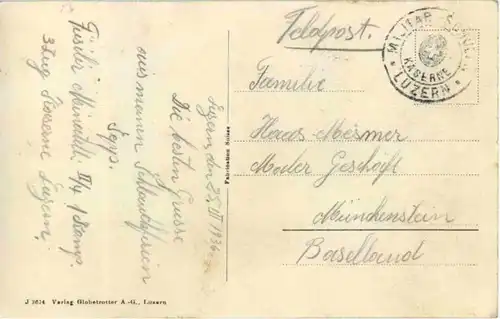 Feldpost.
MILITÄR SCHULEN
KASERNE
LUZERN
Familie
Haas Mesmer
Maler Geschäft
Münchenstein
Baselland
Luzern, den 25. III 1936
Die besten Grüsse
aus meinen
Sepp.
Füsilier II/4 1 Komp.
3 Zug Kaserne Luzern.
Fabrication Suisse
J 2614 Verlag Globetrotter A.-G., Luzern